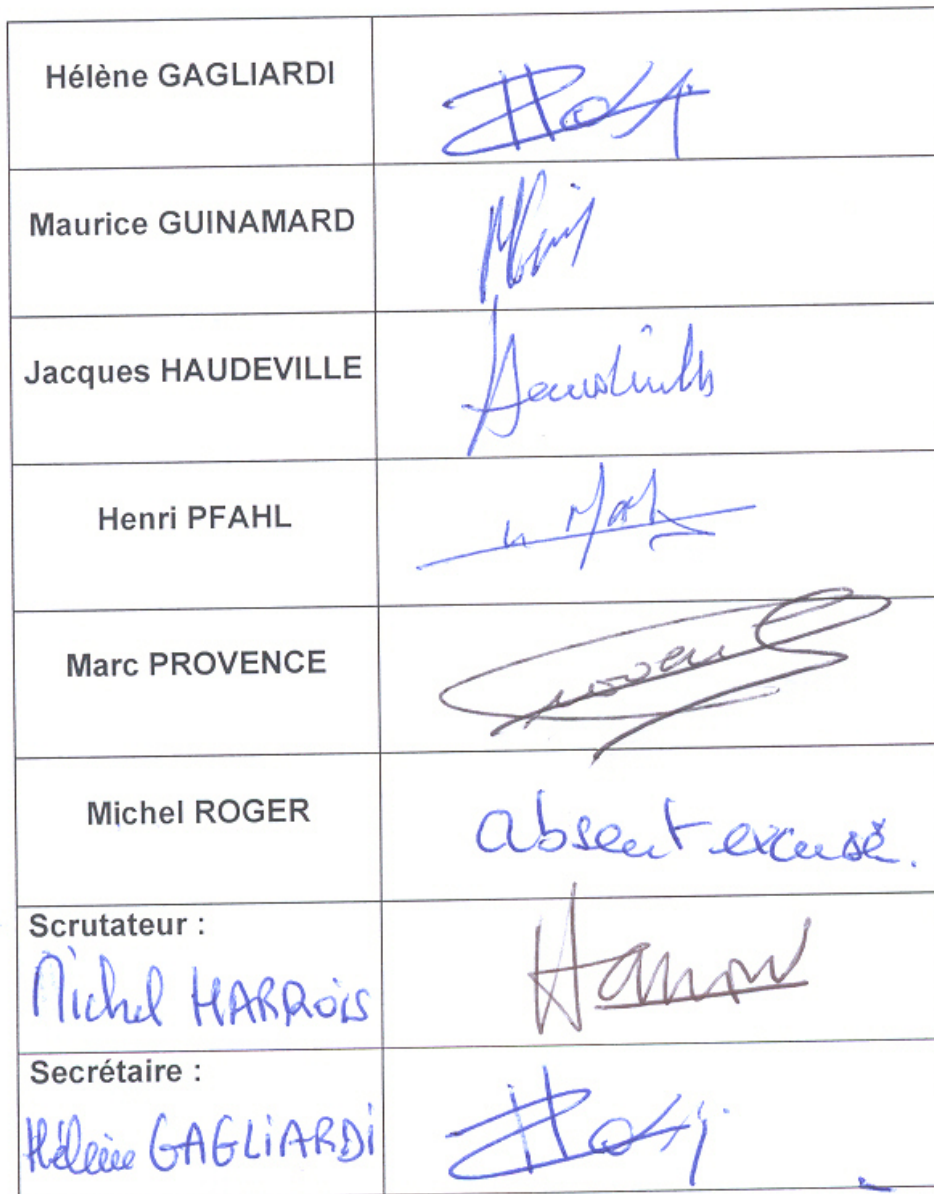 Hélène GAGLIARDI
Maurice GUINAMARD
Jacques HAUDEVILLE
Henri PFAHL
Marc PROVENCE
Michel ROGER
absent excusé.
Scrutateur :
Michel HARROIS
Secrétaire :
Hélène GAGLiARDi